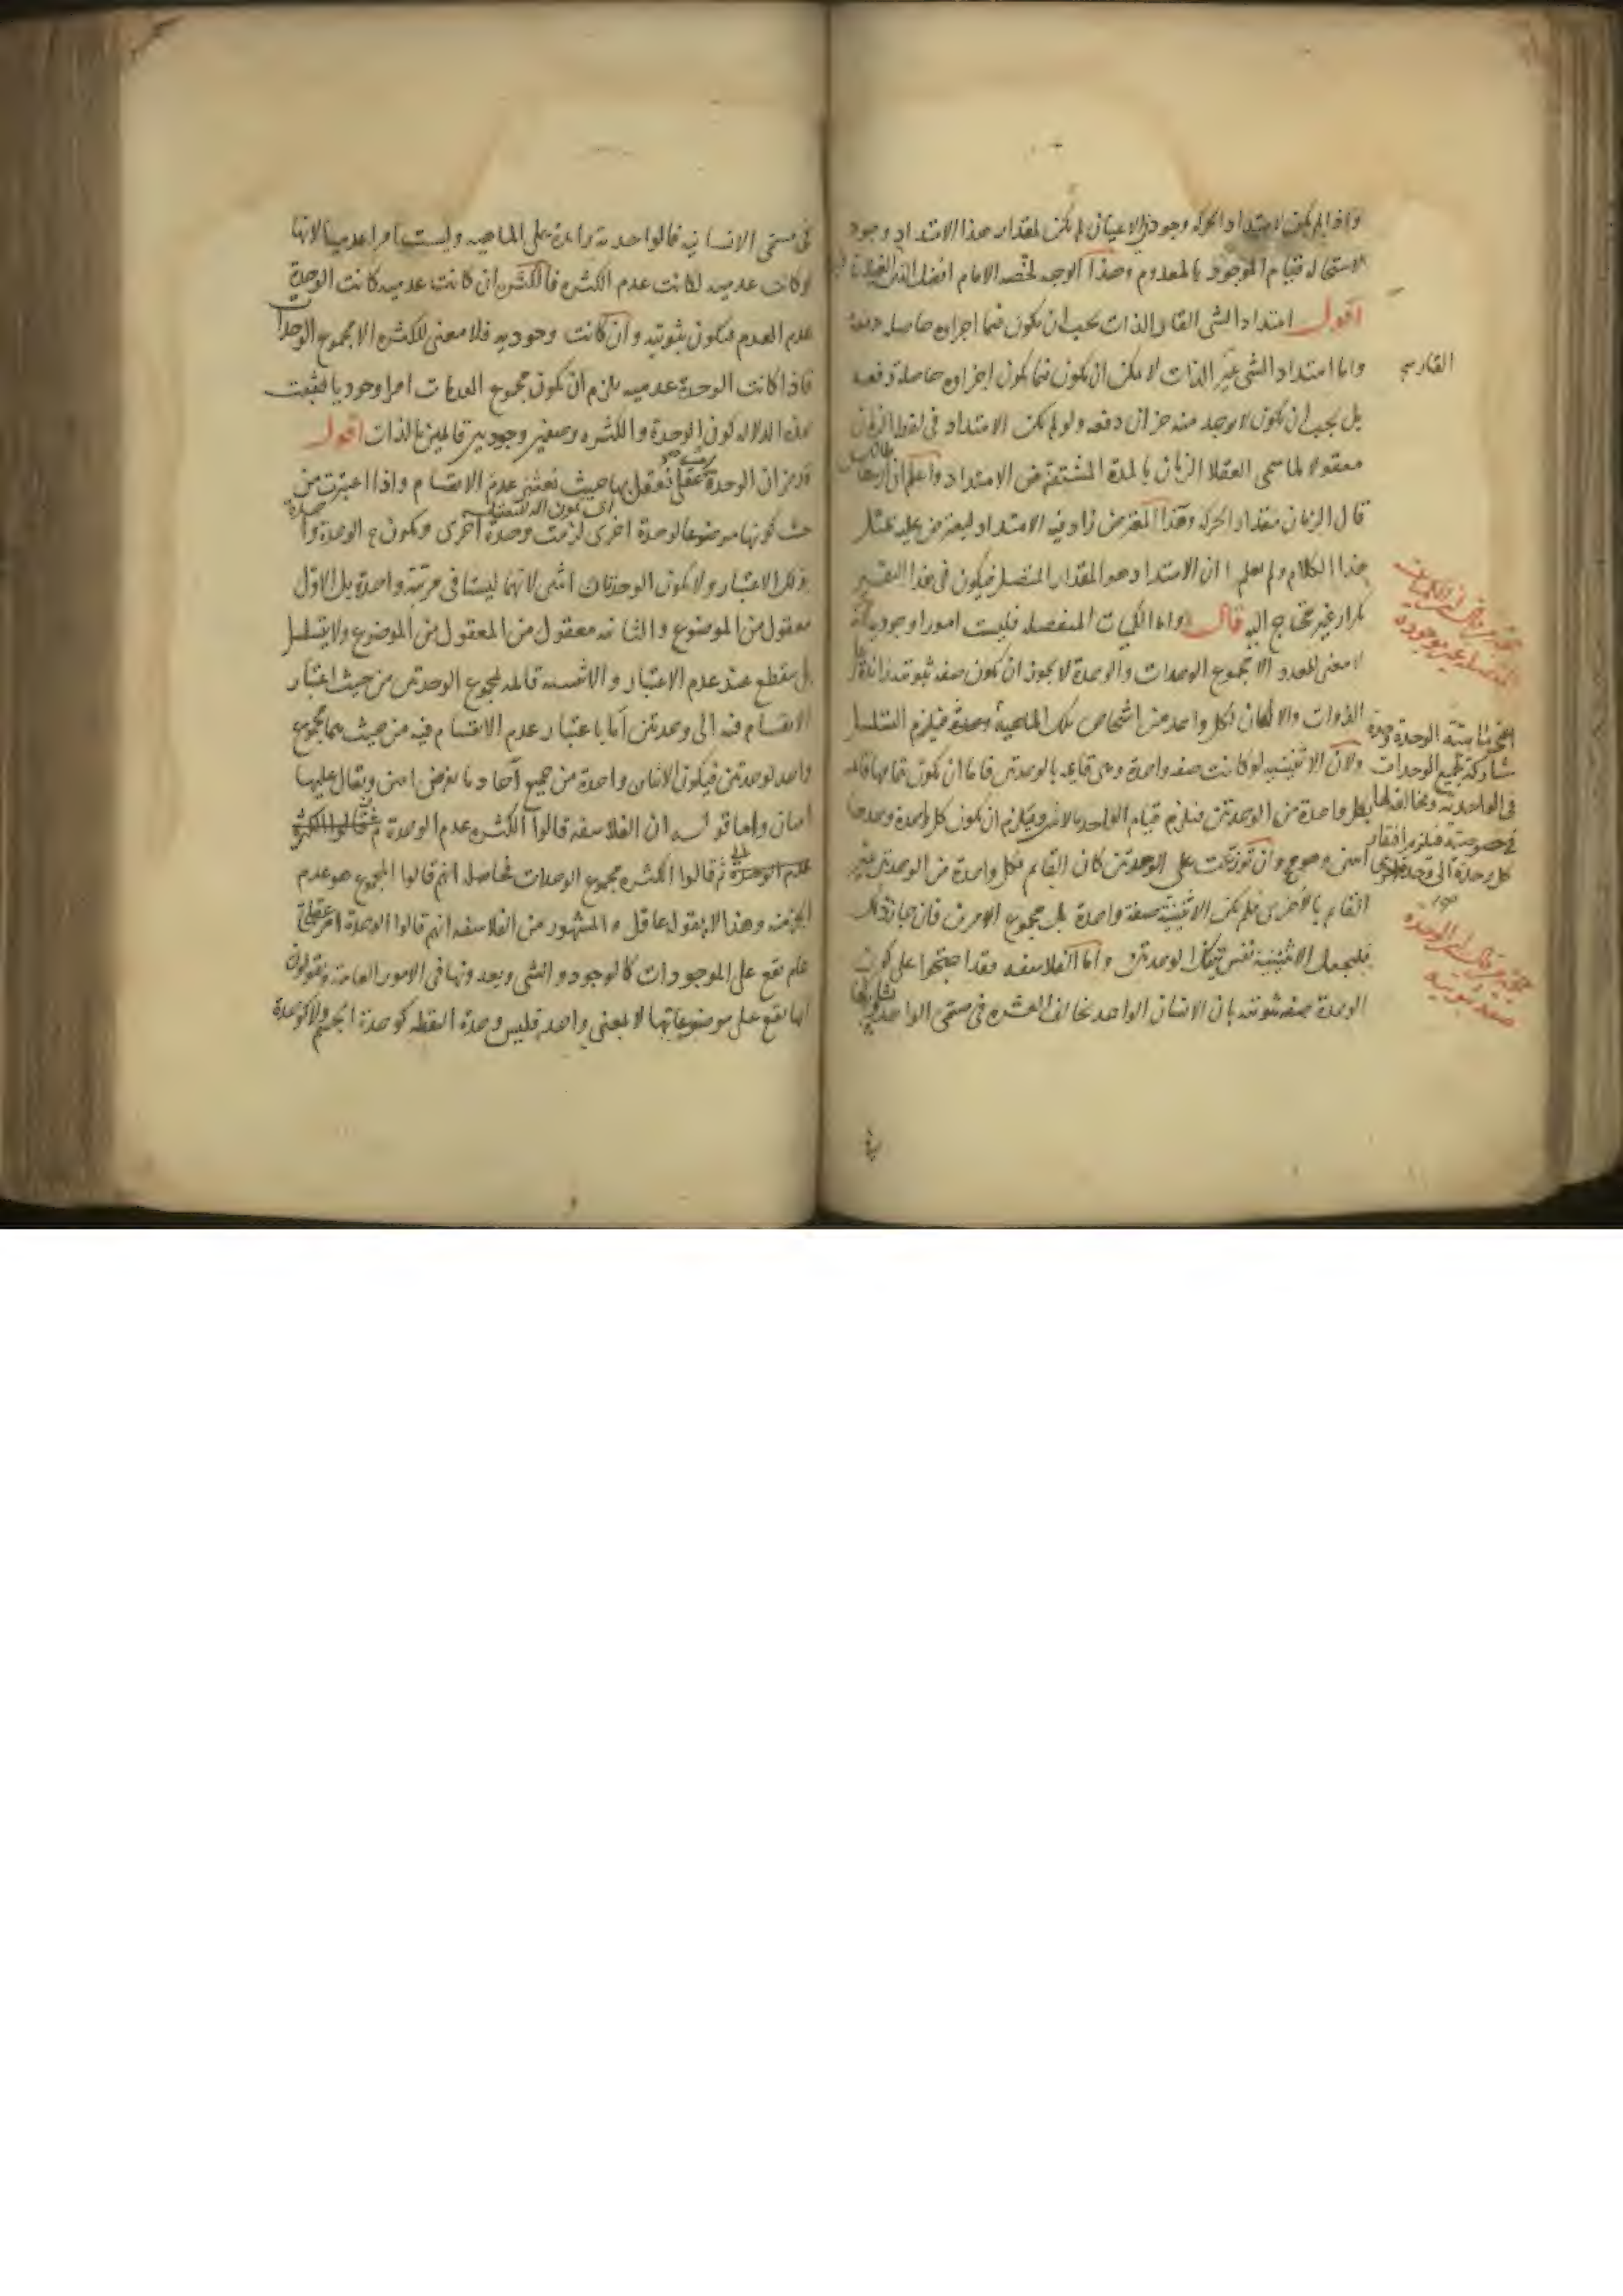 واذا لم يكن لامتداد الحركة وجود في الاعيان لم يكن لمقدار هذا الامتداد وجود
لاستحالة قيام الموجود بالمعدوم وهذا الوجه لخصه الامام افضل الدين الغيلاني
اقول امتداد الشى القار الذات يجب ان يكون فيما اجزاوه حاصلة دفعة
واما امتداد الشى غير الذات لا يمكن ان يكون فيما يكون اجزاوه حاصلة دفعه
القار صح
بل يجب ان يكون لا يوجد منه جزان دفعه ولو لم يكن الامتداد فى لفظ الزمان
معقولا لما سمى العقلا الزمان بالمدة المشتقة من الامتداد واعلم ان ارسطاطاليس
قال الزمان مقدار الحركة وهذا المعترض زاد فيه الامتداد ليعترض عليه بمثل
هذا الكلام ولم يعلم ان الامتداد هو المقدار المتصل فيكون فى هذا التفسير
تكرار غير محتاج اليه قال واما الكميات المنفصله فليست امورا وجودية
حجة من قال ان الكميات
المنفصلة غير موجودة
لا معنى للعدد الا مجموع الوحدات والوحدة لا يجوز ان تكون صفة ثبوتية زائدة على
الذوات والا لكان لكل واحد من اشخاص تلك الماهية وحدة فيلزم التسلسل
ولان الاثنينيه لو كانت صفه واحدة وهى قايمه بالوحدتين فاما ان تكون بتمامها قائمة
بكل واحدة من الوحدتين فيلزم قيام الواحد بالاثنين ويلزم ان يكون كل واحدة وحدها
اثنين وهو مح وان توزعت على الوحدتين كان القايم بكل واحدة من الوحدتين غير
القايم بالاخرى فلم تكن الاثنينية صفة واحدة بل مجموع الامرين فان جاز ذلك
فليجعل الاثنينية نفس تينك الوحدتين واما الفلاسفه فقد احتجوا على كون
الوحدة صفه ثبوتيه بان الانسان الواحد يخالف العشره فى مسمى الواحد ويشاركها
شاركة لجميع الوحدات
فى الواحدية ومخالفة لها
فى خصوصيته فيلزم افتقار
كل وحدة الى وحدة اخرى
حجة من قال ان الوحدة
صفة ثبوتية
فى مسمى الانسانيه فالواحدية زايدة على الماهيه وليست امرا عدميا لانها
لو كانت عدميه لكانت عدم الكثره فالكثره ان كانت عدميه كانت الوحدة
عدم العدم فتكون ثبوتيه وان كانت وجوديه فلا معنى للكثره الا مجموع الوحدات
فاذا كانت الوحدة عدميه يلزم ان يكون مجموع العدمات امرا وجوديا فثبت
بهذه الدلاله كون الوحدة والكثره وصفين وجوديين قائمين بالذات اقول
قد مر ان الوحدة تعقل بها حيث نعتبر عدم الانقسام واذا اعتبرت من
حيث كونها موضوعا لوحدة اخرى لزمت وحدة اخرى
ذلك الاعتبار ولا يكون الوحدتان اثنين لانهما ليستا فى مرتبة واحدة بل الاول
معقول من الموضوع والثانيه معقول من المعقول من الموضوع ولا يتسلسل
بل ينقطع عند عدم الاعتبار والاثنينيه قايمه لمجموع الوحدتين من حيث اعتبار
الانقسام فيه الى وحدتين اما باعتبار عدم الانقسام فيه من حيث هما مجموع
واحد لوحدتين فيكون الاثنان واحدة من جميع آحاد ما يعرض اثنين ويقال عليها
اثنان واما قوله ان الفلاسفه قالوا الكثره عدم الوحدة ثم قالوا الكثره
عدم الوحدة ثم قالوا الكثره مجموع الوحدات فحاصله انهم قالوا المجموع هو عدم
الجز منه وهذا لا يقوله عاقل والمشهور من الفلاسفه انهم قالوا الوحدة امر عقلى
عام يقع على الموجودات كالوجود والشى ويعدونها فى الامور العامة ويقولون
انها تقع على موضوعاتها لا بمعنى واحد فليس وحدة النقطه كوحدة الجسم ولا كوحدة